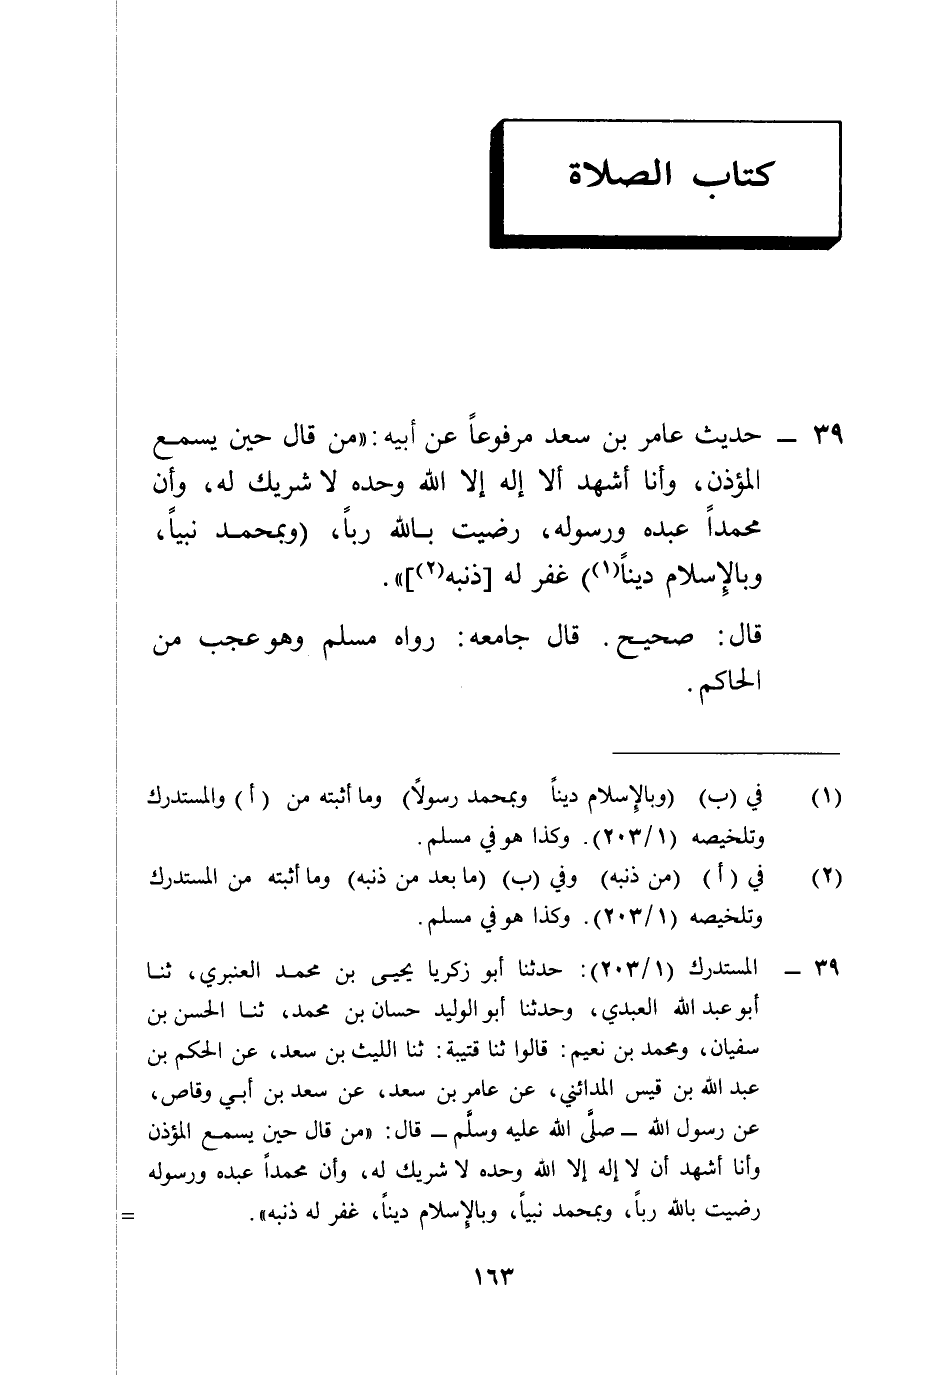 كتاب الصلاة
٣٩ ــ حديث عامر بن سعد مرفوعاً عن أبيه: «من قال حين يسمع
المؤذن، وأنا أشهد ألا إله إلا الله وحده لا شريك له، وأن
محمداً عبده ورسوله، رضيت بالله رباً، (وبمحمد نبياً،
وبالإسلام ديناً(١)) غفر له [ذنبه(٢)]».
قال: صحيح. قال جامعه: رواه مسلم وهو عجب من
الحاكم.
(١) في (ب) (وبالإسلام ديناً وبمحمد رسولاً) وما أثبته من (أ) والمستدرك
وتلخيصه (٢٠٣/١). وكذا هو في مسلم.
(٢) في (أ) (من ذنبه) وفي (ب) (ما بعد من ذنبه) وما أثبته من المستدرك
وتلخيصه (٢٠٣/١). وكذا هو في مسلم.
٣٩ ــ المستدرك (٢٠٣/١): حدثنا أبو زكريا يحيى بن محمد العنبري، ثنا
أبو عبد الله العبدي، وحدثنا أبو الوليد حسان بن محمد، ثنا الحسن بن
سفيان، ومحمد بن نعيم: قالوا ثنا قتيبة: ثنا الليث بن سعد، عن الحكم بن
عبد الله بن قيس المدائني، عن عامر بن سعد، عن سعد بن أبي وقاص،
عن رسول الله ــ صلَّى الله عليه وسلَّم ــ قال: «من قال حين يسمع المؤذن
وأنا أشهد أن لا إله إلا الله وحده لا شريك له، وأن محمداً عبده ورسوله
رضيت بالله رباً، وبمحمد نبياً، وبالإسلام ديناً، غفر له ذنبه». =
١٦٣